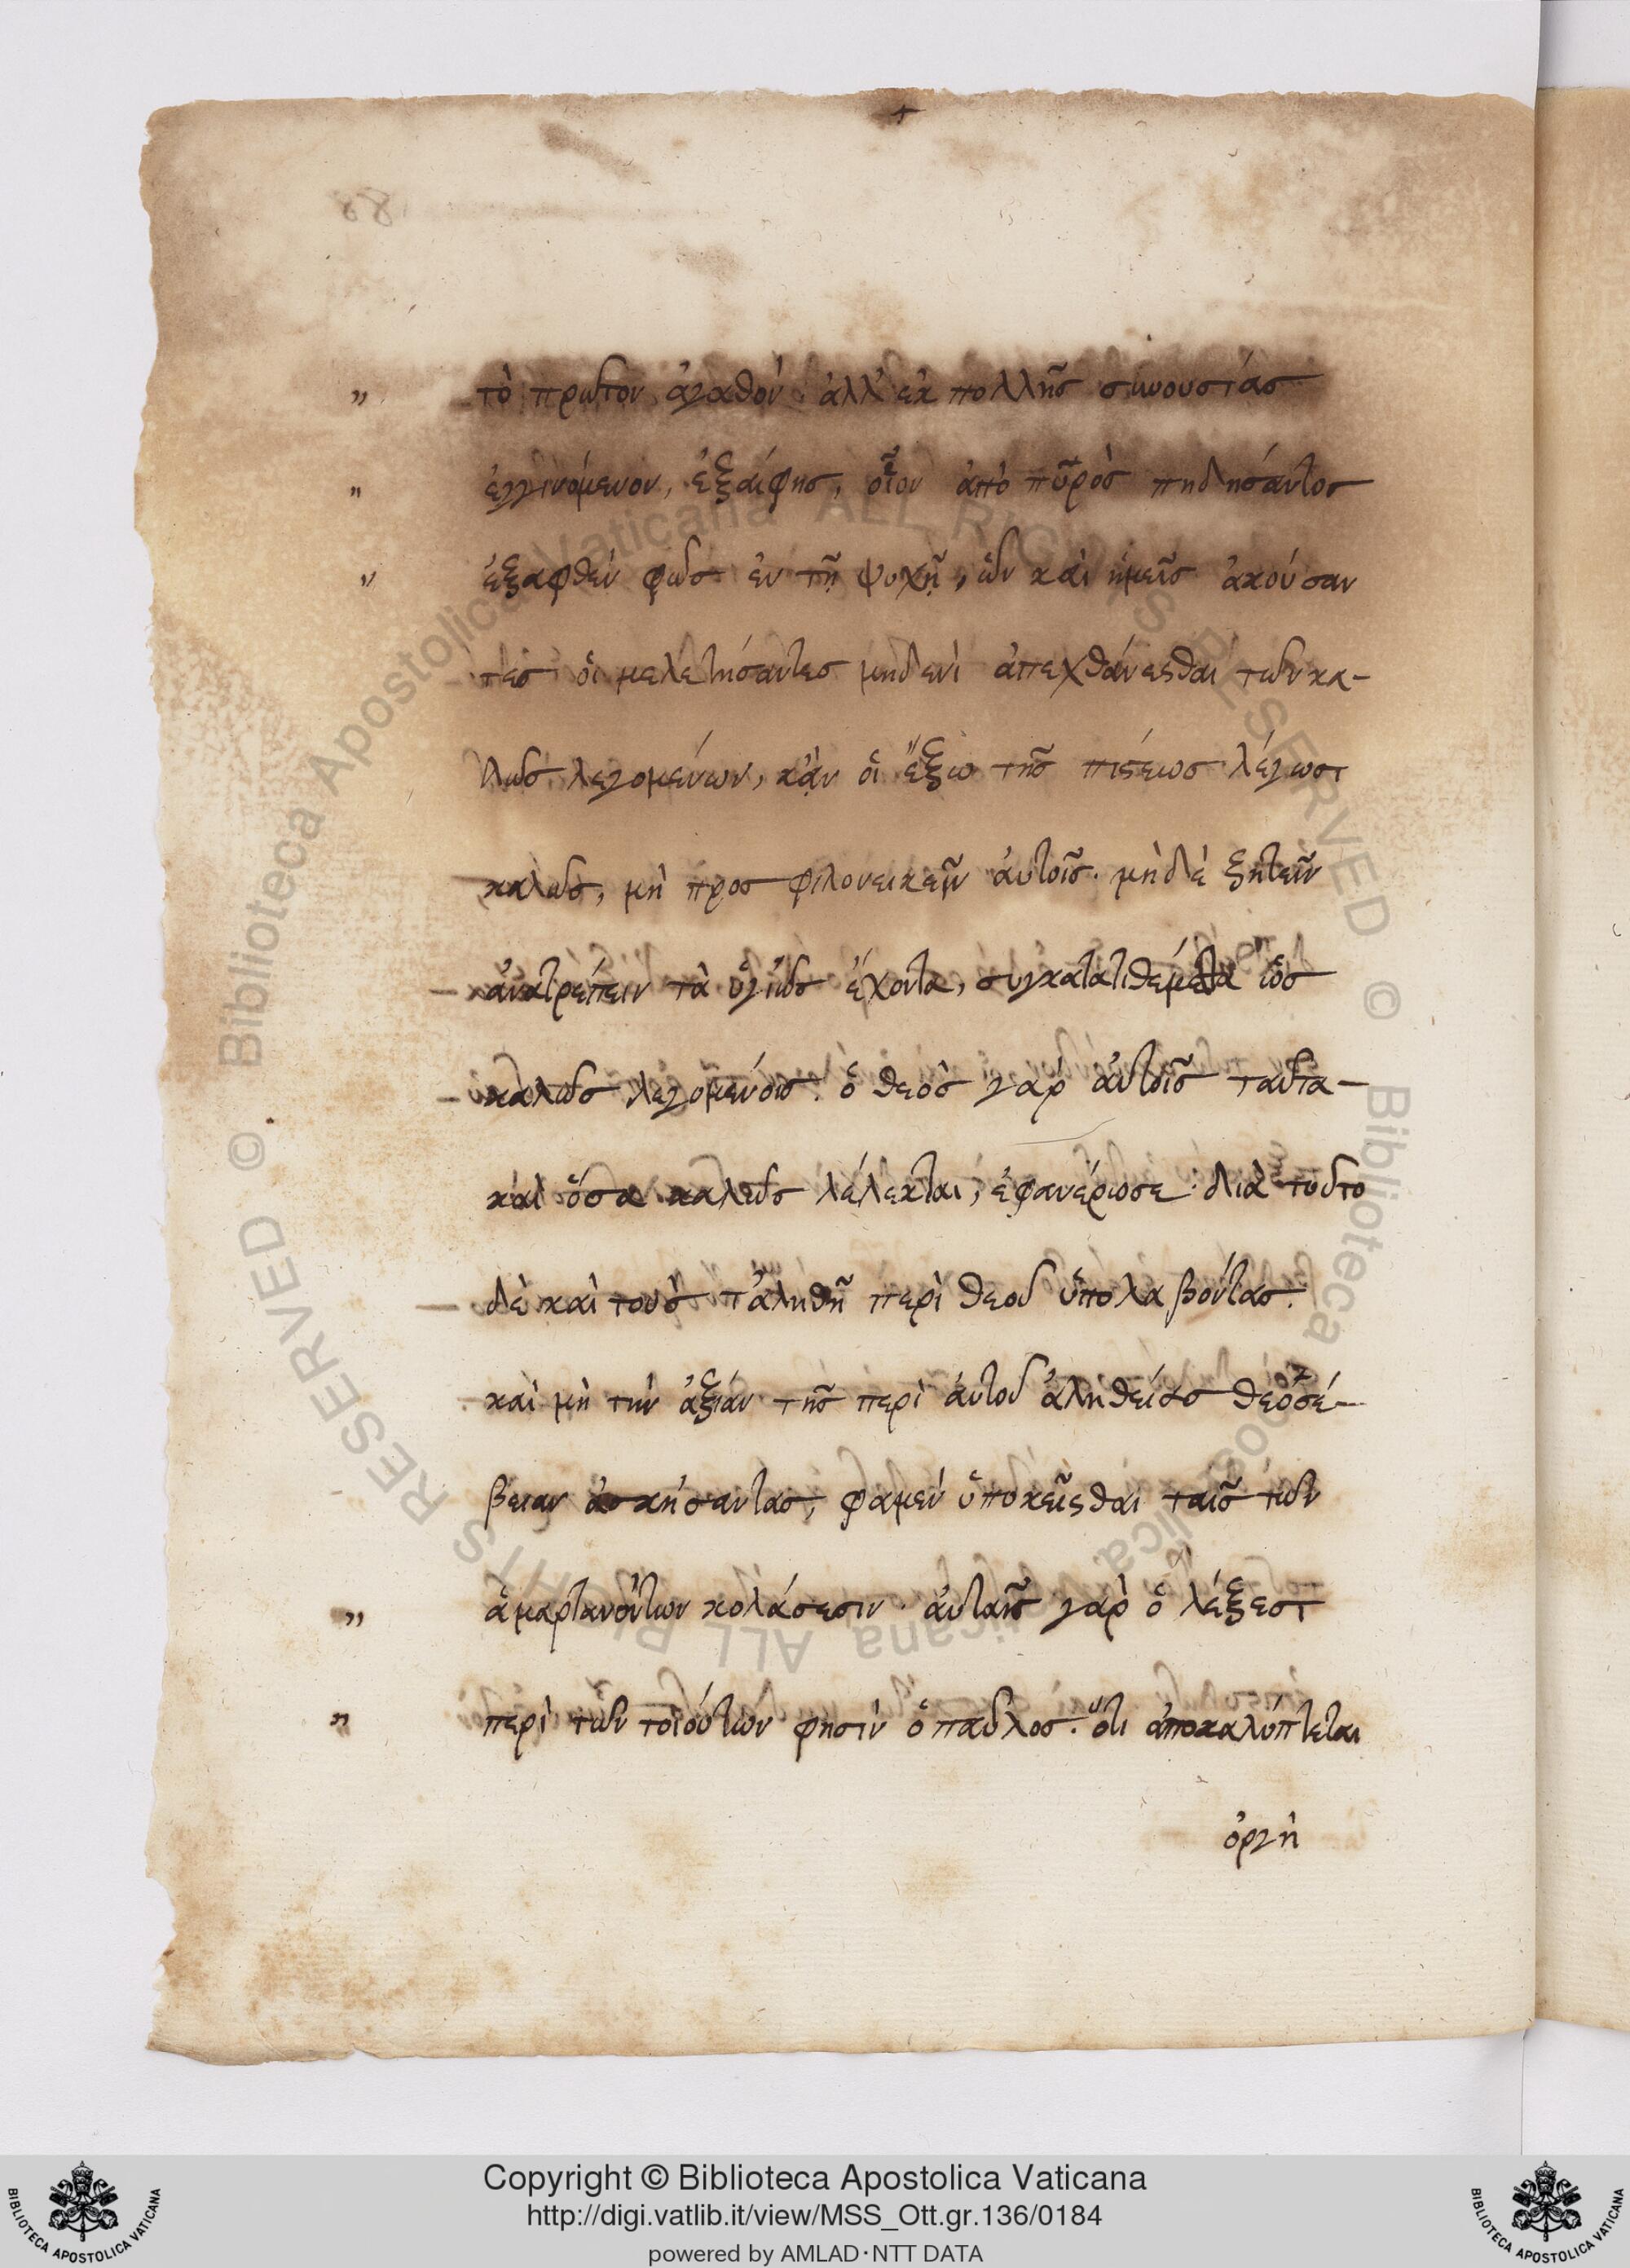 τὸ πρῶτον ἀγαθόν· ἀλλ' ἐκ πολλῆς συνουσίας
ἐγγινόμενον, ἐξαίφνης, οἷον ἀπὸ πυρὸς πηδήσαντος
ἐξαφθὲν φῶς ἐν τῇ ψυχῇ, ὧν καὶ ἡμεῖς ἀκούσαν
τες οἱ μελετήσαντες μηδενὶ ἀπεχθάνεσθαι τῶν κα-
λῶς λεγομένων, κἂν οἱ ἔξω τῆς πίστεως λέγωσι
καλῶς, μὴ προσφιλονεικεῖν αὐτοῖς· μηδὲ ζητεῖν
ἀνατρέπειν τὰ ὑγιῶς ἔχοντα, συγκατατιθέμεθα ὡς
καλῶς λεγομένοις· ὁ θεὸς γὰρ αὐτοῖς ταῦτα-
καὶ ὅσα καλῶς λέλεκται, ἐφανέρωσε· διὰ τοῦτο
δὲ καὶ τοὺς τἀληθῆ περὶ θεοῦ ὑπολαβόντας·
καὶ μὴ τὴν ἀξίαν τῆς περὶ αὐτοῦ ἀληθείας θεοσέ-
βειαν ἀσκήσαντας, φαμὲν ὑποκεῖσθαι ταῖς τῶν
ἁμαρτανόντων κολάσεσιν· αὐταῖς γὰρ ὁ λέξεσι
περὶ τῶν τοιούτων φησὶν ὁ παῦλος· ὅτι ἀποκαλύπτεται
ὀργὴ
Copyright © Biblioteca Apostolica Vaticana
http://digi.vatlib.it/view/MSS_Ott.gr.136/0184
powered by AMLAD·NTT DATA